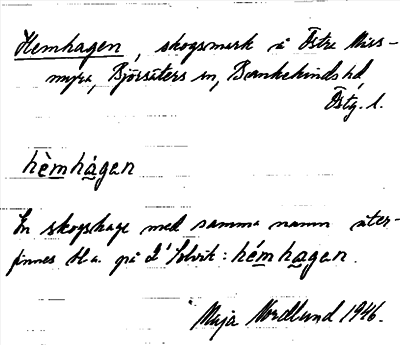 Hemhagen, skogsmark å Östra Miss-
myra, Björsäters sn, Bankekinds hd
Östg. l.
hèmhágen
En skogshage med samma namn åter-
finnes bl.a. på : hémhagen.
Maja Nordlund 1946.